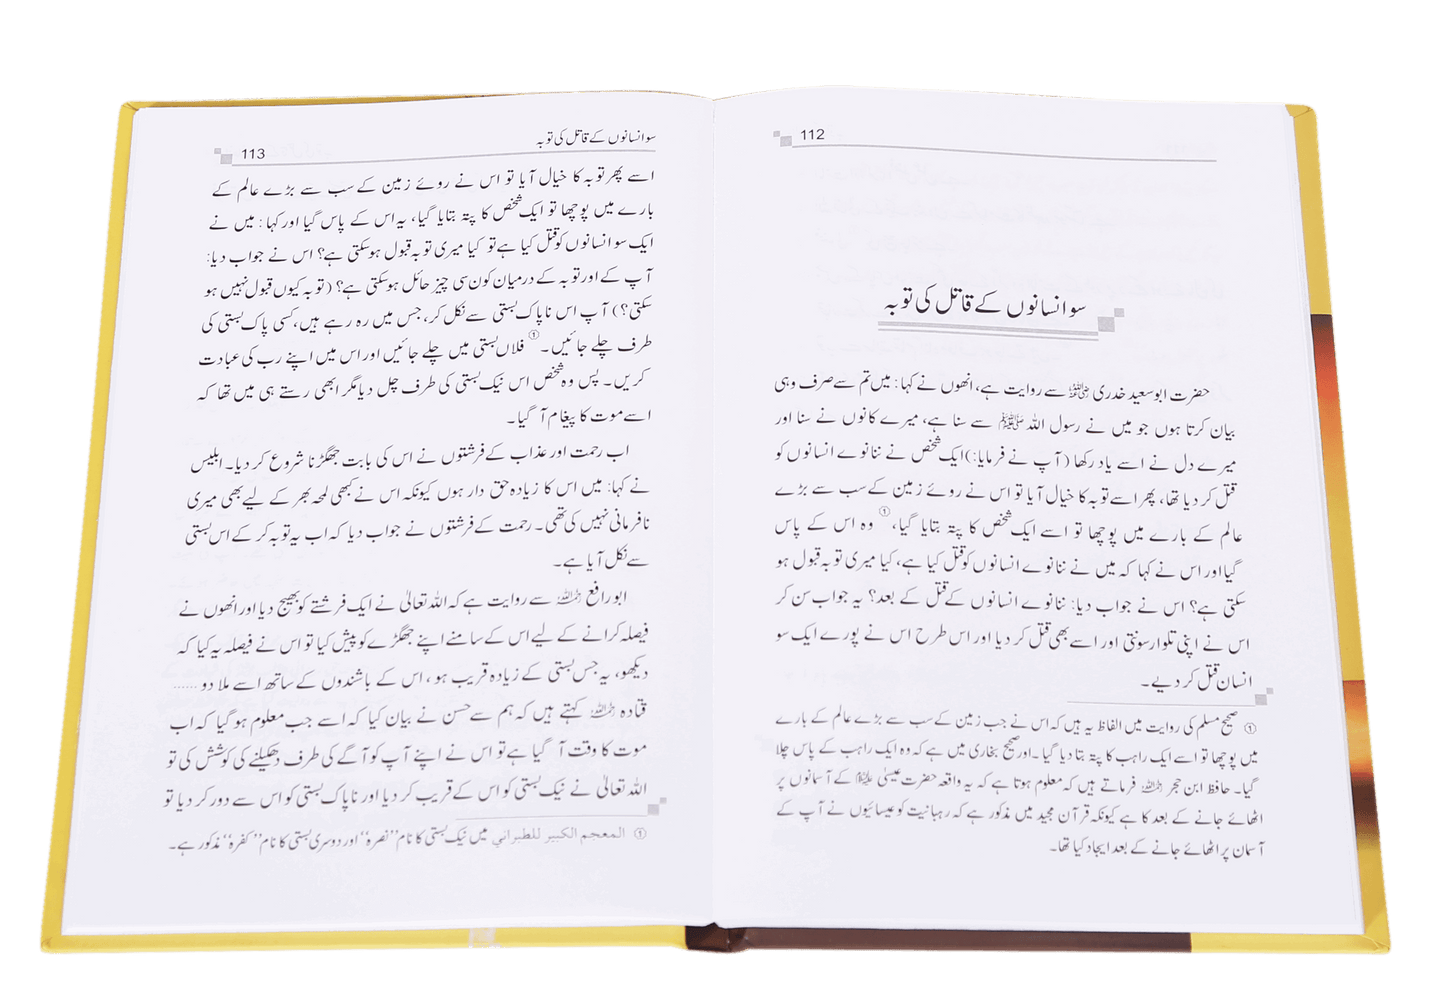 112
سو انسانوں کے قاتل کی توبہ
حضرت ابوسعید خدری رضی اللہ عنہ سے روایت ہے، انھوں نے کہا: میں تم سے صرف وہی
بیان کرتا ہوں جو میں نے رسول اللہ ﷺ سے سنا ہے، میرے کانوں نے سنا اور
میرے دل نے اسے یاد رکھا (آپ نے فرمایا:) ایک شخص نے ننانوے انسانوں کو
قتل کر دیا تھا، پھر اسے توبہ کا خیال آیا تو اس نے روئے زمین کے سب سے بڑے
عالم کے بارے میں پوچھا تو اسے ایک شخص کا پتہ بتایا گیا،① وہ اس کے پاس
گیا اور اس نے کہا کہ میں نے ننانوے انسانوں کو قتل کیا ہے، کیا میری توبہ قبول ہو
سکتی ہے؟ اس نے جواب دیا: ننانوے انسانوں کے قتل کے بعد؟ یہ جواب سن کر
اس نے اپنی تلوار سونتی اور اسے بھی قتل کر دیا اور اس طرح اس نے پورے ایک سو
انسان قتل کر دیے۔
① صحیح مسلم کی روایت میں الفاظ یہ ہیں کہ اس نے جب زمین کے سب سے بڑے عالم کے بارے
میں پوچھا تو اسے ایک راہب کا پتہ بتا دیا گیا۔ اور صحیح بخاری میں ہے کہ وہ ایک راہب کے پاس چلا
گیا۔ حافظ ابن حجر رحمہ اللہ فرماتے ہیں کہ معلوم ہوتا ہے کہ یہ واقعہ حضرت عیسیٰ علیہ السلام کے آسمانوں پر
اٹھائے جانے کے بعد کا ہے کیونکہ قرآن مجید میں مذکور ہے کہ رہبانیت کو عیسائیوں نے آپ کے
آسمان پر اٹھائے جانے کے بعد ایجاد کیا تھا۔
سو انسانوں کے قاتل کی توبہ
113
اسے پھر توبہ کا خیال آیا تو اس نے روئے زمین کے سب سے بڑے عالم کے
بارے میں پوچھا تو ایک شخص کا پتہ بتایا گیا، یہ اس کے پاس گیا اور کہا: میں نے
ایک سو انسانوں کو قتل کیا ہے تو کیا میری توبہ قبول ہوسکتی ہے؟ اس نے جواب دیا:
آپ کے اور توبہ کے درمیان کون سی چیز حائل ہوسکتی ہے؟ (توبہ کیوں قبول نہیں ہو
سکتی؟) آپ اس ناپاک بستی سے نکل کر، جس میں رہ رہے ہیں، کسی پاک بستی کی
طرف چلے جائیں۔① فلاں بستی میں چلے جائیں اور اس میں اپنے رب کی عبادت
کریں۔ پس وہ شخص اس نیک بستی کی طرف چل دیا مگر ابھی رستے ہی میں تھا کہ
اسے موت کا پیغام آ گیا۔
اب رحمت اور عذاب کے فرشتوں نے اس کی بابت جھگڑنا شروع کر دیا۔ ابلیس
نے کہا: میں اس کا زیادہ حق دار ہوں کیونکہ اس نے کبھی لمحہ بھر کے لیے بھی میری
نافرمانی نہیں کی تھی۔ رحمت کے فرشتوں نے جواب دیا کہ اب یہ توبہ کر کے اس بستی
سے نکل آیا ہے۔
ابو رافع رحمہ اللہ سے روایت ہے کہ اللہ تعالیٰ نے ایک فرشتے کو بھیج دیا اور انھوں نے
فیصلہ کرانے کے لیے اس کے سامنے اپنے جھگڑے کو پیش کیا تو اس نے فیصلہ یہ کیا کہ
دیکھو، یہ جس بستی کے زیادہ قریب ہو، اس کے باشندوں کے ساتھ اسے ملا دو ......
قتادہ رحمہ اللہ کہتے ہیں کہ ہم سے حسن نے بیان کیا کہ اسے جب معلوم ہو گیا کہ اب
موت کا وقت آ گیا ہے تو اس نے اپنے آپ کو آگے کی طرف دھکیلنے کی کوشش کی تو
اللہ تعالیٰ نے نیک بستی کو اس کے قریب کر دیا اور ناپاک بستی کو اس سے دور کر دیا تو
① المعجم الكبير للطبراني میں نیک بستی کا نام ”نصرہ“ اور دوسری بستی کا نام ”کفرہ“ مذکور ہے۔